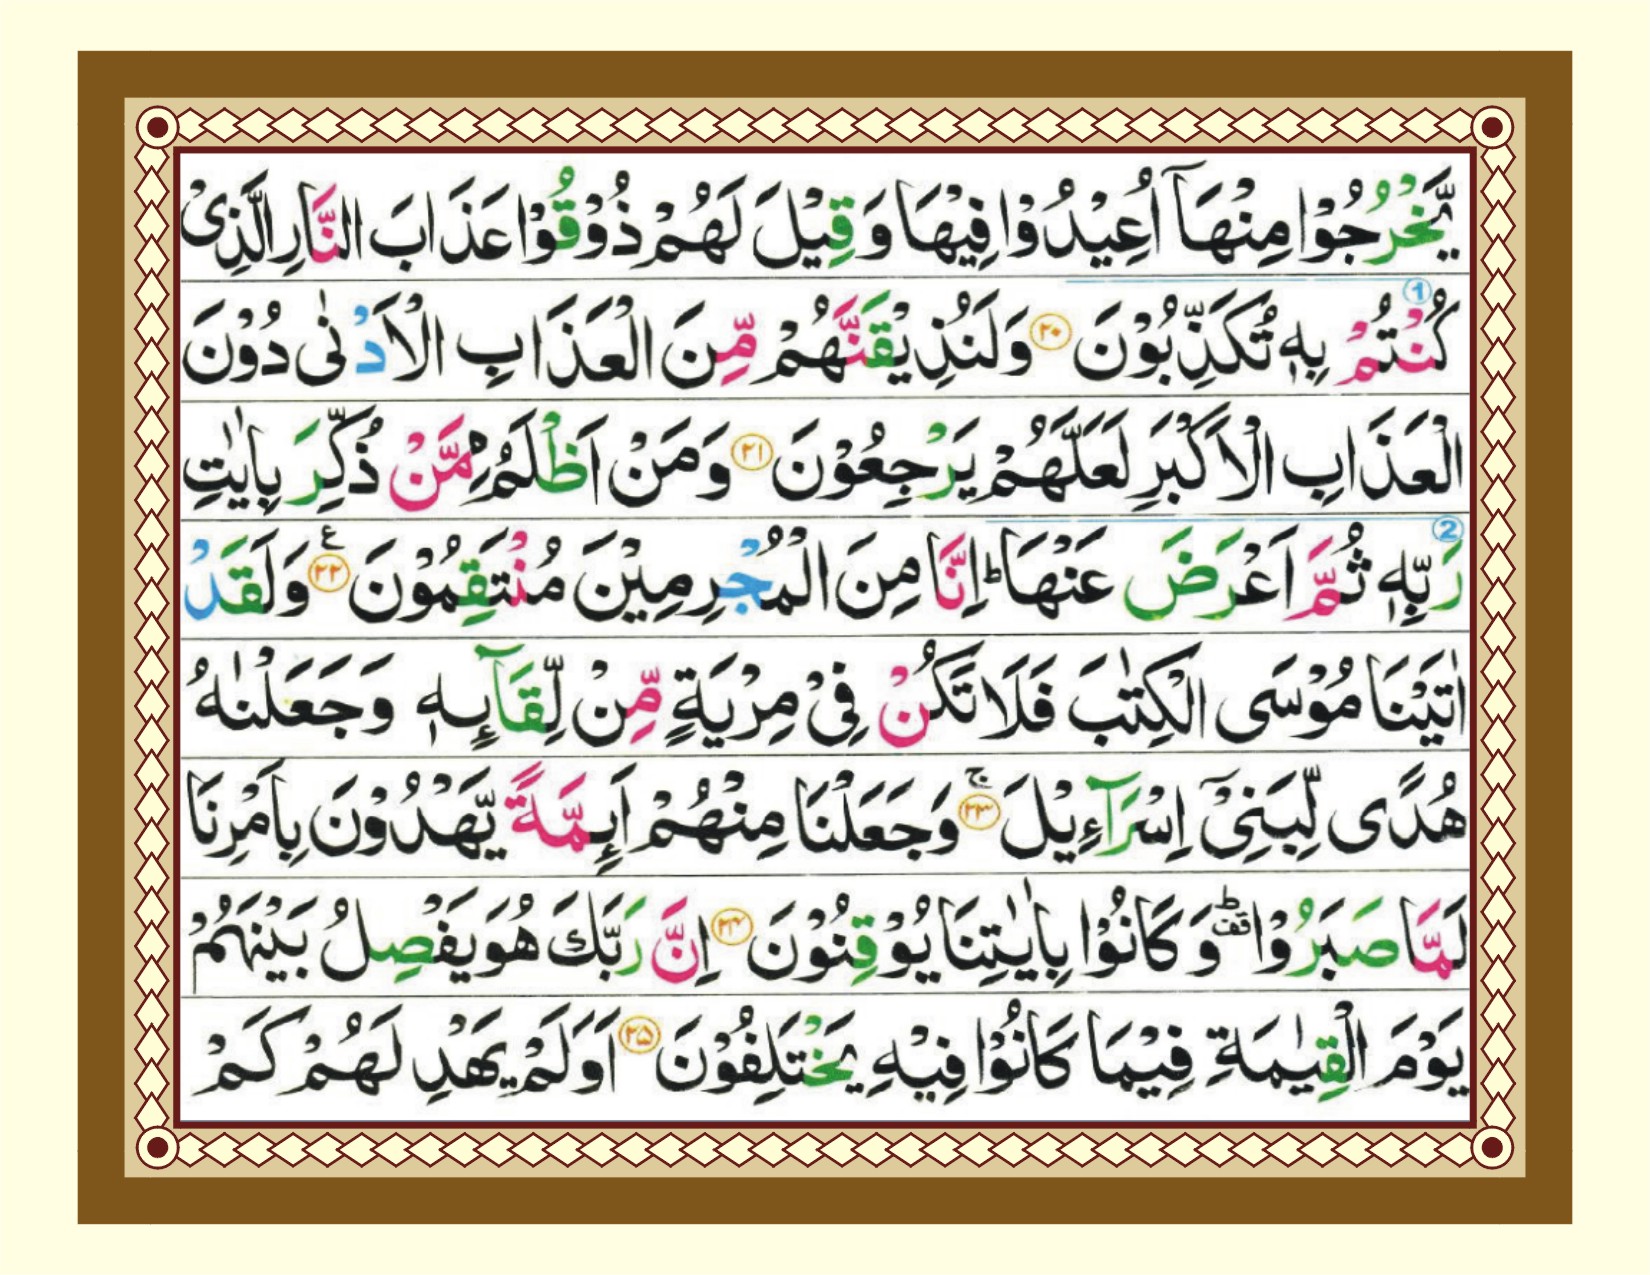 يَّخۡرُجُوۡا مِنۡهَاۤ اُعِيۡدُوۡا فِيۡهَا وَ قِيۡلَ لَهُمۡ ذُوۡقُوۡا عَذَابَ النَّارِ الَّذِىۡ
1
كُنۡتُمۡ بِهٖ تُكَذِّبُوۡنَ ۲۰ وَلَنُذِيۡقَنَّهُمۡ مِّنَ الۡعَذَابِ الۡاَدۡنٰى دُوۡنَ
الۡعَذَابِ الۡاَكۡبَرِ لَعَلَّهُمۡ يَرۡجِعُوۡنَ ۲۱ وَمَنۡ اَظۡلَمُ مِمَّنۡ ذُكِّرَ بِاٰيٰتِ
2
رَبِّهٖ ثُمَّ اَعۡرَضَ عَنۡهَا ؕ اِنَّا مِنَ الۡمُجۡرِمِيۡنَ مُنۡتَقِمُوۡنَ ۲۲ ع وَلَقَدۡ
اٰتَيۡنَا مُوۡسَى الۡكِتٰبَ فَلَا تَكُنۡ فِىۡ مِرۡيَةٍ مِّنۡ لِّقَآٮِٕهٖ وَجَعَلۡنٰهُ
هُدًى لِّبَنِىۡۤ اِسۡرَآءِيۡلَ ۲۳ ۚ وَجَعَلۡنَا مِنۡهُمۡ اَٮِٕمَّةً يَّهۡدُوۡنَ بِاَمۡرِنَا
لَمَّا صَبَرُوۡا ؕ قف وَ كَانُوۡا بِاٰيٰتِنَا يُوۡقِنُوۡنَ ۲۴ اِنَّ رَبَّكَ هُوَ يَفۡصِلُ بَيۡنَهُمۡ
يَوۡمَ الۡقِيٰمَةِ فِيۡمَا كَانُوۡا فِيۡهِ يَخۡتَلِفُوۡنَ ۲۵ اَوَلَمۡ يَهۡدِ لَهُمۡ كَمۡ